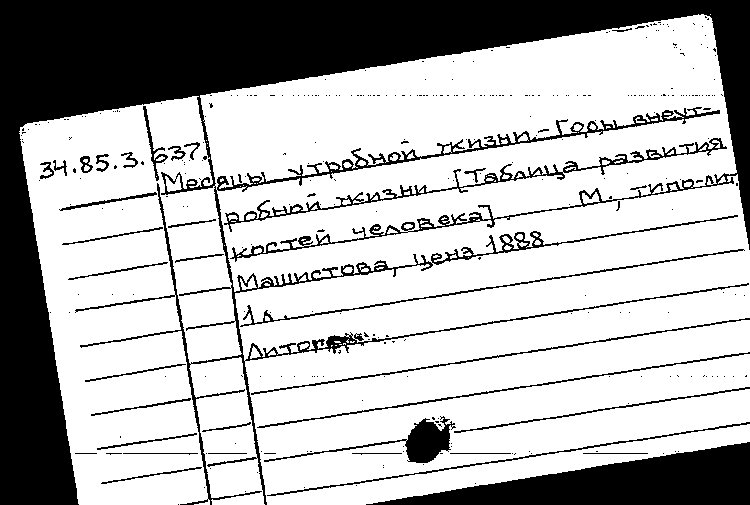 34.85.3.637.
Месяцы утробной жизни.-Годы внеут-
робной жизни [Таблица развития
костей человека]. М., типо-лит.
Машистова, ценз. 1888
1 л.